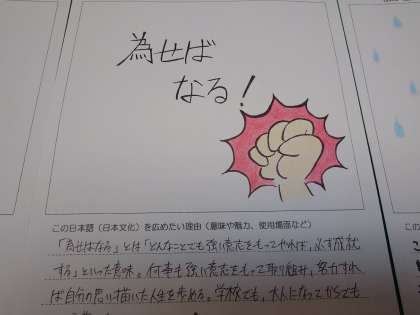 為せば
なる！
この日本語（日本文化）を広めたい理由（意味や魅力、使用場面など）
「為せばなる」とは「どんなことでも強い意志をもってやれば、必ず成就
する」といった意味。何事も強い意志をもって取り組み、努力すれ
ば自分の思い描いた人生を歩める。学校でも、大人になってからでも
こ